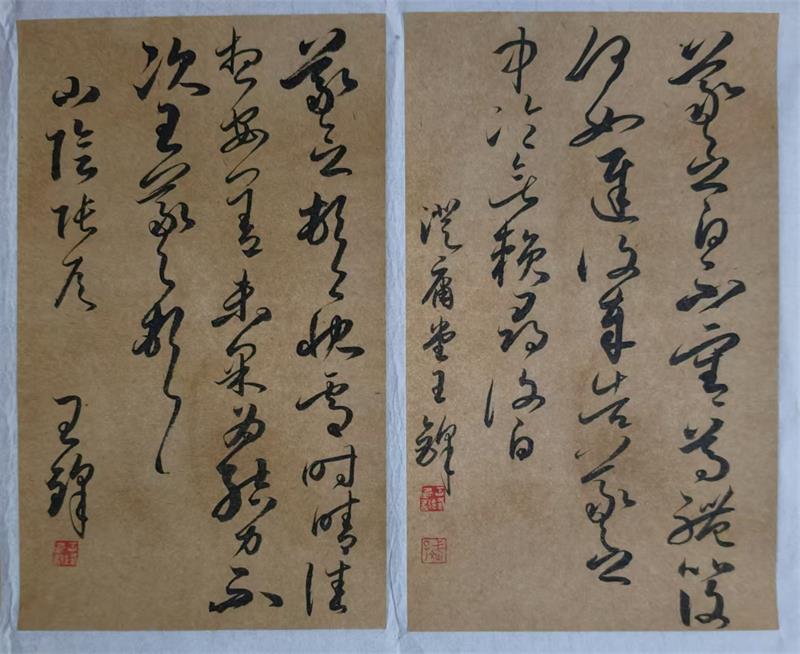 羲之白不審尊體比復
何如遲復奉告羲之
中冷無賴尋復白
堂王鋒
羲之頓首快雪時晴佳
想安善未果為結力不
次王羲之頓首
山陰張侯
王鋒